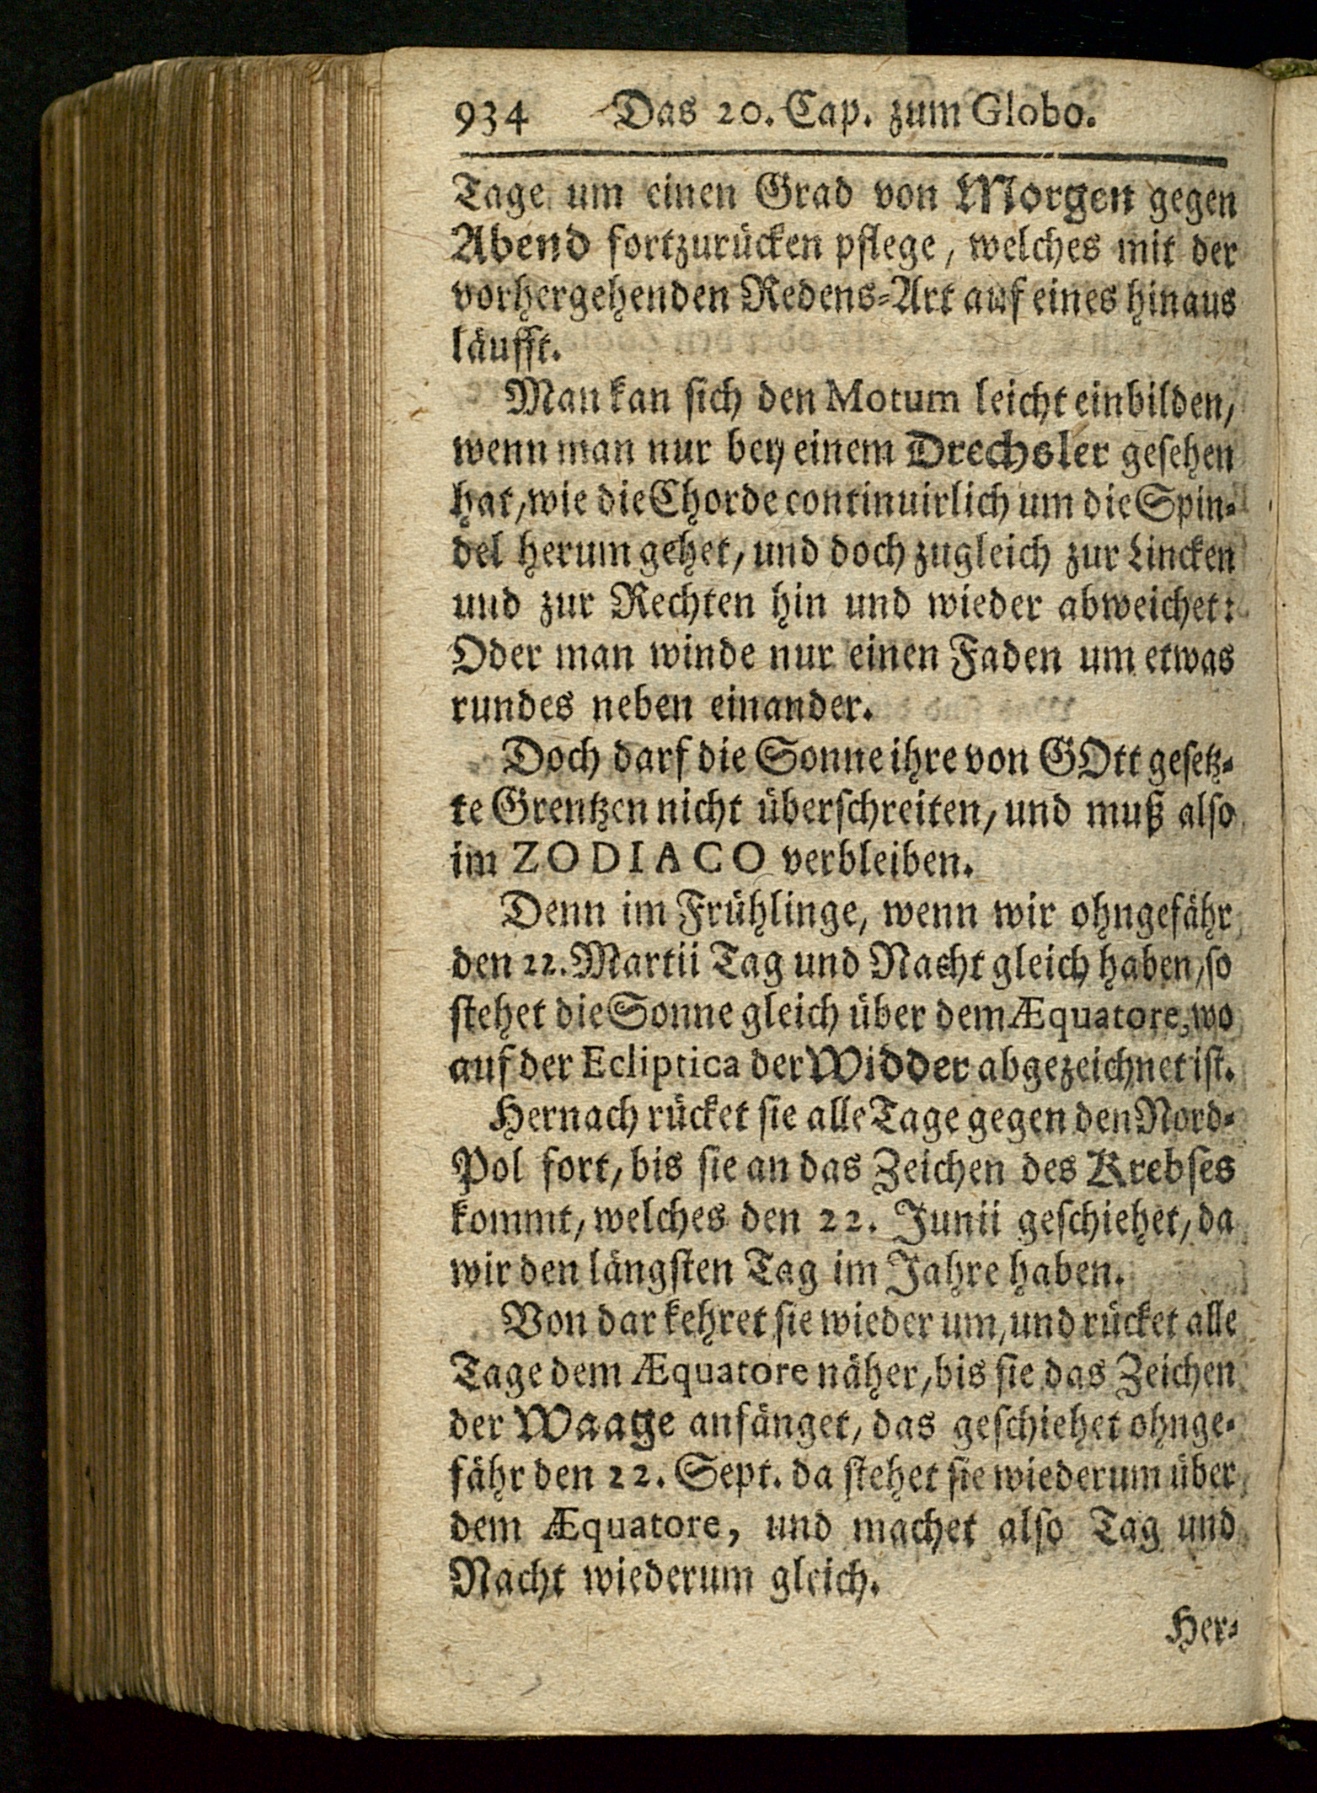 934 Das 20. Cap. zum Globo.
Tage um einen Grad von Morgen gegen
Abend fortzurücken pflege, welches mit der
vorhergehenden Redens-Art auf eines hinaus
läufft.
Man kan sich den Motum leicht einbilden,
wenn man nur bey einem Drechsler gesehen
hat, wie die Chorde continuirlich um die Spin-
del herum gehet, und doch zugleich zur Lincken
und zur Rechten hin und wieder abweichet:
Oder man winde nur einen Faden um etwas
rundes neben einander.
Doch darf die Sonne ihre von GOtt gesetz-
te Grentzen nicht überschreiten, und muß also
im ZODIACO verbleiben.
Denn im Frühlinge, wenn wir ohngefähr
den 22. Martii Tag und Nacht gleich haben, so
stehet die Sonne gleich über dem Æquatore, wo
auf der Ecliptica der Widder abgezeichnet ist.
Hernach rücket sie alle Tage gegen den Nord-
Pol fort, bis sie an das Zeichen des Krebses
kommt, welches den 22. Junii geschiehet, da
wir den längsten Tag im Jahre haben.
Von dar kehret sie wieder um, und rücket alle
Tage dem Æquatore näher, bis sie das Zeichen
der Waage anfänget, das geschiehet ohnge-
fähr den 22. Sept. da stehet sie wiederum über
dem Æquatore, und machet also Tag und
Nacht wiederum gleich.
Her-